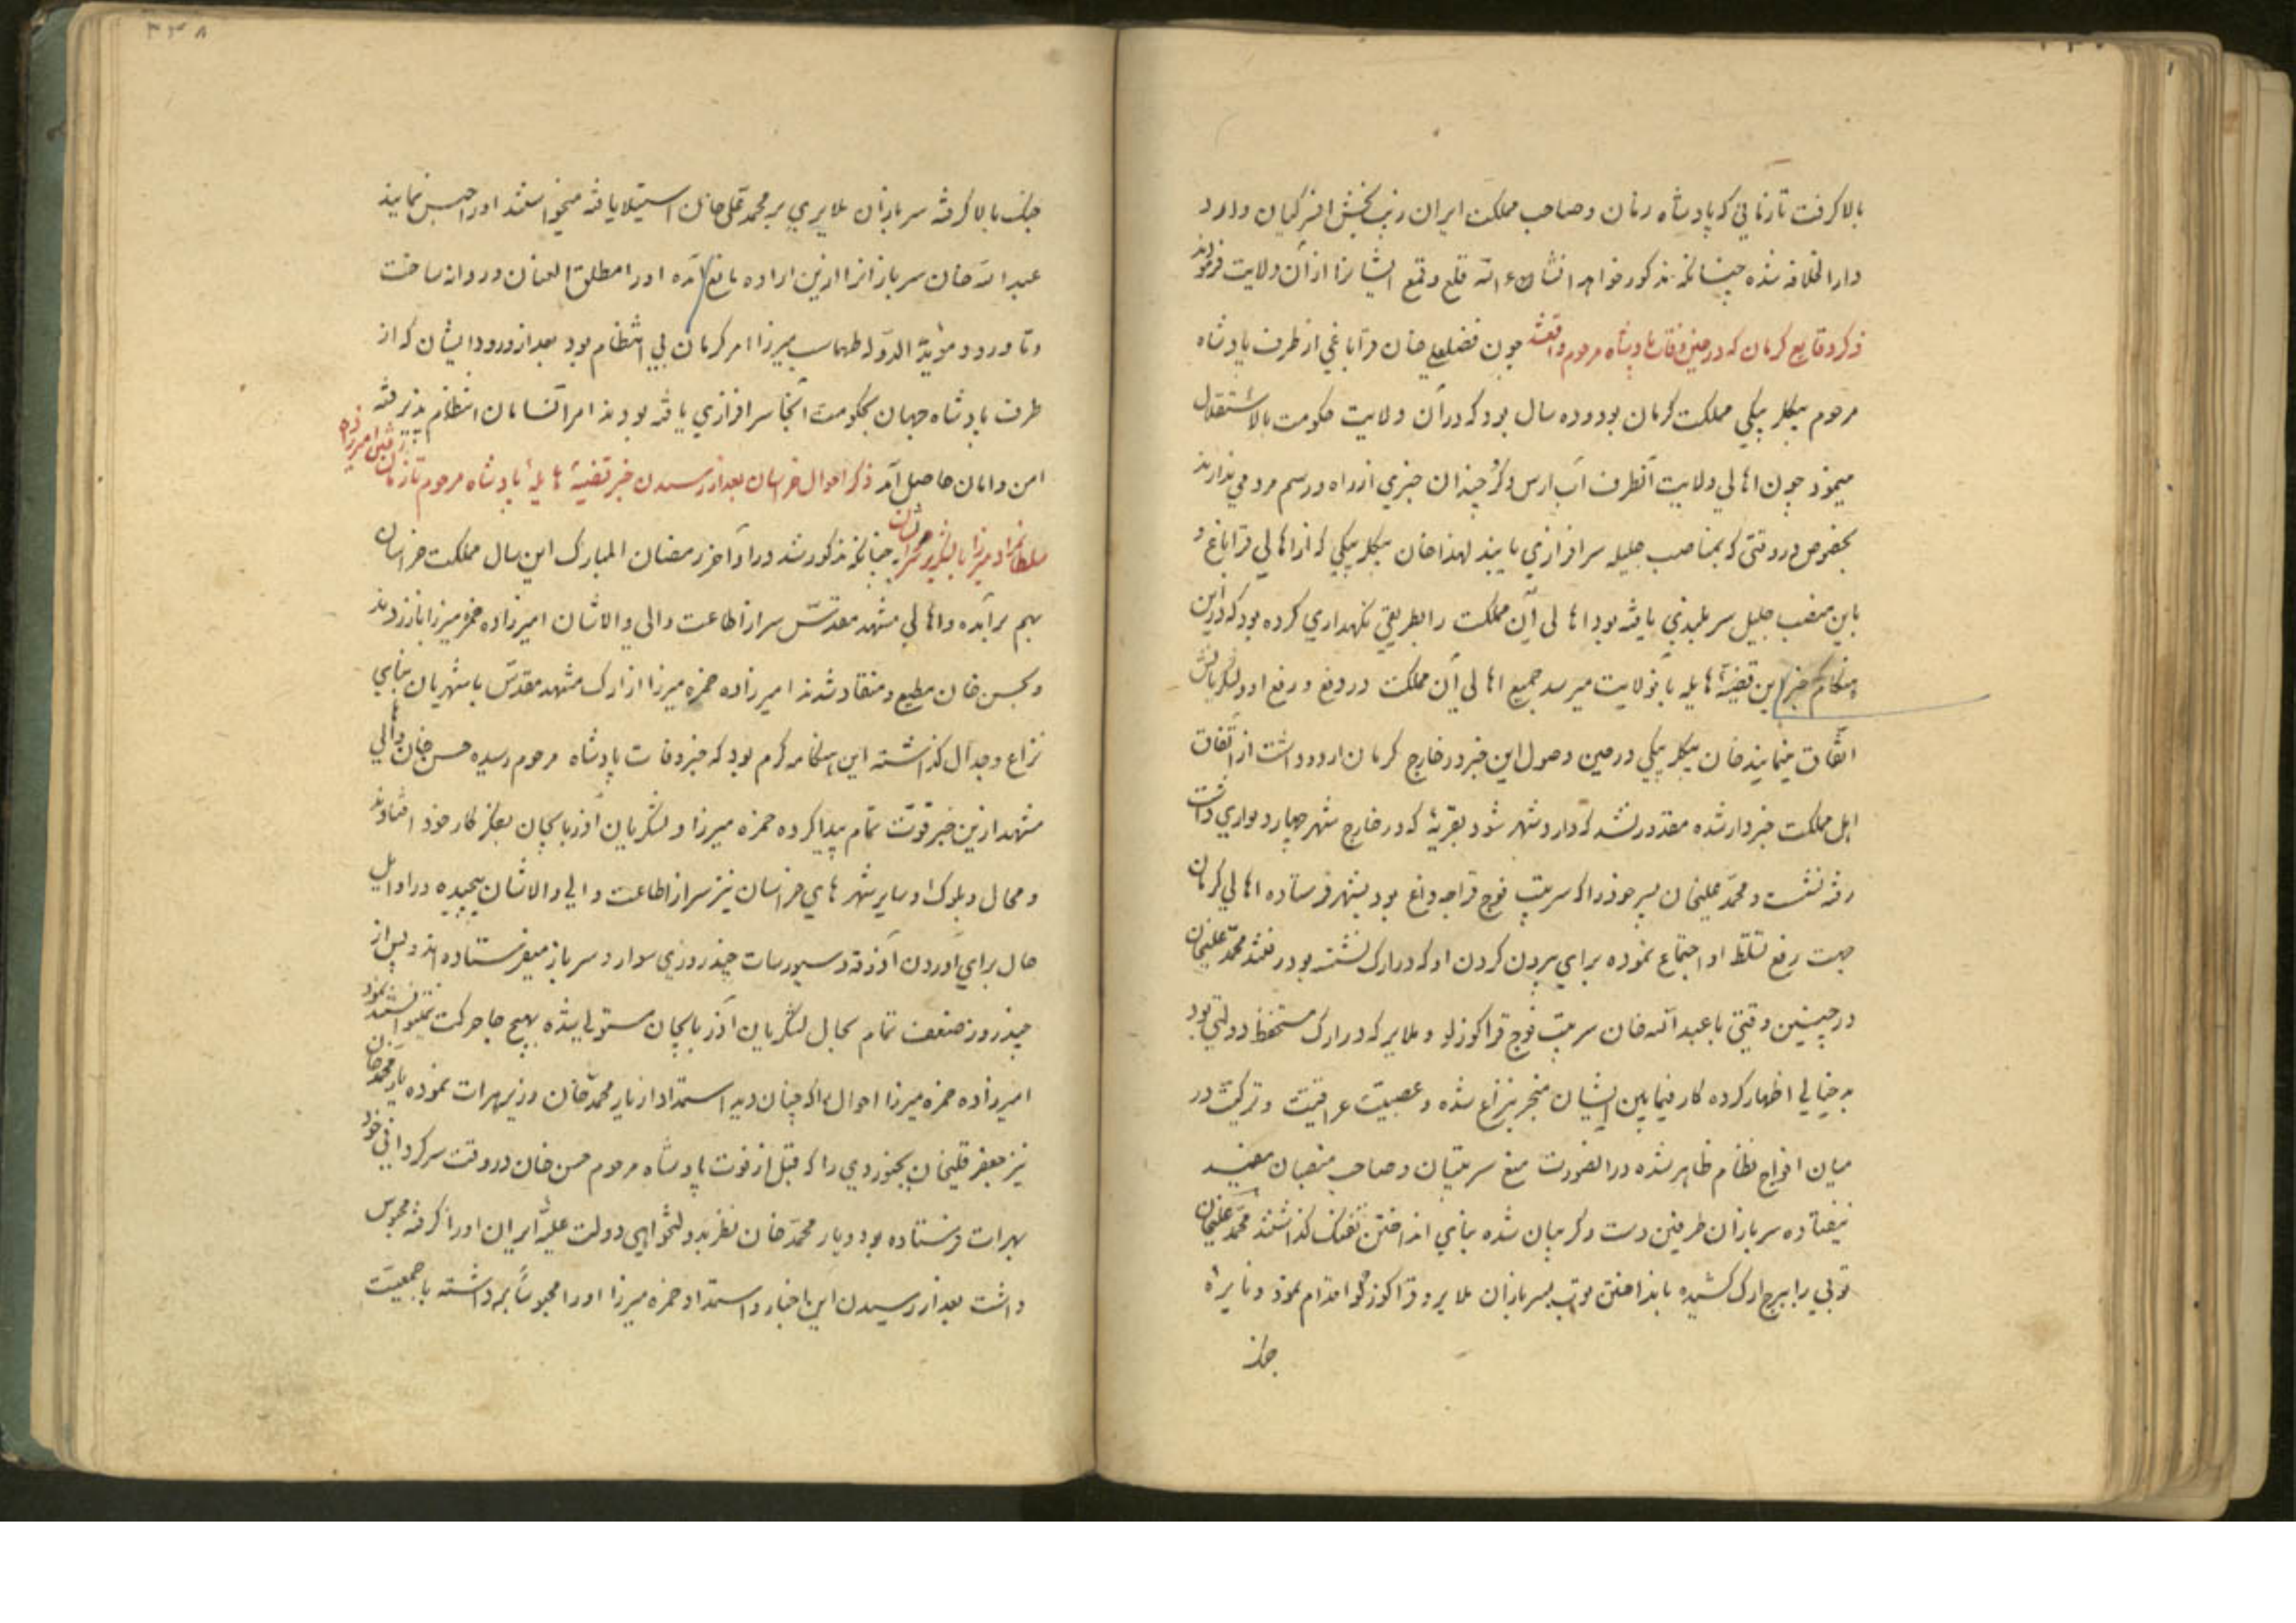 بالا گرفت تا زمانی که پادشاه زمان و صاحب مملکت ایران زینت بخش افسر کیان وارد
دار الخلافه شده چنانکه مذکور خواهد انشاء الله قلع و قمع ایشانرا از آن ولایت فرمودند
ذکر وقایع کرمان که در حین وفات پادشاه مرحوم واقعشد چون فضلعلی خان قراباغی از طرف پادشاه
مرحوم بیکلر بیکی مملکت کرمان بود و ده سال بود که در آن ولایت حکومت بالاستقلال
مینمود چون اهالی ولایت آنطرف آب ارس و کر چندان خبری از راه و رسم مردمی ندارند
بخصوص در وقتی که بمناصب جلیله سرافرازی یابند لهذا خان بیکلر بیکی که از اهالی قراباغ و
باین منصب جلیل سربلندی یافته بود اهالی آن مملکت را بطریقی نکهداری کرده بود که در این
هنکام خبر این قضیهٔ هایله بآنولایت میرسد جمیع اهالی آن مملکت در دفع و رفع او و لشکریانش
اتفاق مینمایند خان بیکلر بیکی در حین وصول این خبر در خارج کرمان اردو داشت از اتفاق
اهل مملکت خبردار شده مقدور نشد که وارد شهر شود بقریهٔ که در خارج شهر چهار دیواری داشت
رفته نشست و محمد علیخان پسر خود را که سرتیپ فوج قراجه داغ بود بشهر فرستاده اهالی کرمان
جهت رفع تسلط او اجتماع نموده برای بیرون کردن او که در ارک نشسته بود رفتند محمد علیخان
در چنین وقتی با عبد الله خان سرتیپ فوج قراکوزلو و ملایر که در ارک مستحفظ دولتی بود
بد خیالی اظهار کرده کار فیمابین ایشان منجر بنزاع شده و عصبیت عراقیت و ترکیت در
میان افواج نظام ظاهر شده در اینصورت منع سرتیپان و صاحب منصبان مفید
نیفتاده سربازان طرفین دست و کریبان شده بنای انداختن تفنک کذاشتند محمد علیخان
توپی را ببرج ارک کشیده بانداختن توپ بسربازان ملایر و قراکوزلو اقدام نمود و نایره
جنک
۳۳۸
جنک بالا کرفته سربازان ملایری بر محمد علی خان استیلا یافته میخواستند او را حبس نمایند
عبد الله خان سربازانرا ازین اراده مانع آمده او را مطلق العنان و روانه ساخت
و تا ورود مؤید الدوله طهماسب میرزا امر کرمان بی انتظام بود بعد از ورود ایشان که از
طرف پادشاه جهان بحکومت آنجا سرافرازی یافته بودند امر آنسامان انتظام پذیرفته
امن و امان حاصل آمد ذکر احوال خراسان بعد از رسیدن خبر قضیهٔ هایلهٔ پادشاه مرحوم تا زمان رفتن امیرزاده
سلطانمراد میرزا با لشکر بخراسان چنانکه مذکور شد در اواخر رمضان المبارک این سال مملکت خراسان
بهم برآمده و اهالی مشهد مقدس سر از اطاعت والی والاشان امیرزاده حمزه میرزا باز زدند
و بحسن خان مطیع و منقاد شدند امیرزاده حمزه میرزا از ارک مشهد مقدس با شهریان بنای
نزاع و جدال کذاشته این هنکامه کرم بود که خبر وفات پادشاه مرحوم رسیده حسن خان و اهالی
مشهد ازین خبر قوت تمام پیدا کرده حمزه میرزا و لشکریان آذربایجان بفکر کار خود افتادند
و محال و بلوک و سایر شهر های خراسان نیز سر از اطاعت والی والاشان پیچیده در اوایل
حال برای آوردن آذوقه و سیورسات چند روزی سوار و سرباز میفرستاده اند و پس از
چند روز ضعف تمام بحال لشکریان آذربایجان مستولی شده بهیچ جا حرکت نمیتوانستند نمود
امیرزاده حمزه میرزا احوال را که چنان دید استمداد از یار محمد خان وزیر هرات نموده یار محمد خان
نیز جعفر قلیخان بجنوردی را که قبل از فوت پادشاه مرحوم حسن خان در وقت سرکردانی خود
بهرات فرستاده بود و یار محمد خان نظر بدولتخواهی دولت علیهٔ ایران او را کرفته محبوس
داشت بعد از رسیدن این اخبار و استمداد حمزه میرزا او را محبوساً برداشته با جمعیت